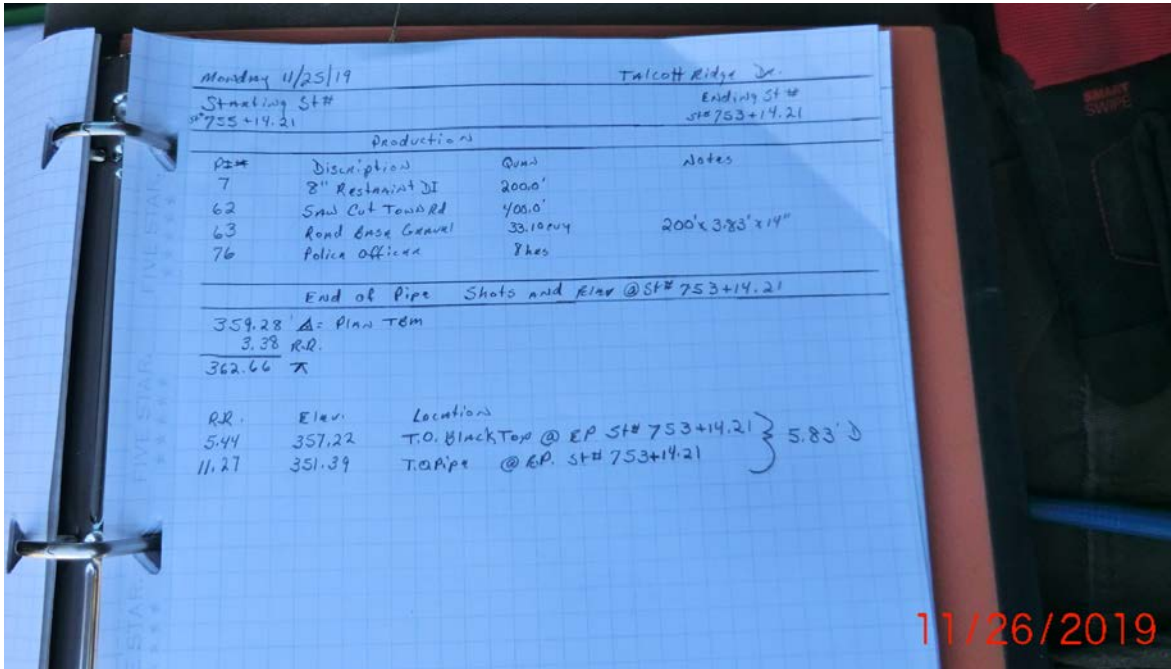 Monday 11/25/19 Talcott Ridge Dr.
Starting St# Ending St#
St# 755+14.21 St# 753+14.21
Production
PI# Discription Quan Notes
7 8" Restraint DI 200.0'
62 Saw Cut Town Rd 400.0'
63 Road Base Gravel 33.10 cuy 200'x 3.83'x 14"
76 Police Officer 8 hrs
End of Pipe Shots and Elev @ St# 753+14.21
359.28' = Plan TBM
3.38 R.R.
362.66
R.R. Elev. Location
5.44 357.22 T.O. Black Top @ EP St# 753+14.21
5.83' D
11.27 351.39 T.O. Pipe @ E.P. St# 753+14.21
FIVE STAR
FIVE STAR
FIVE STAR
SMART
SWIPE
11/26/2019